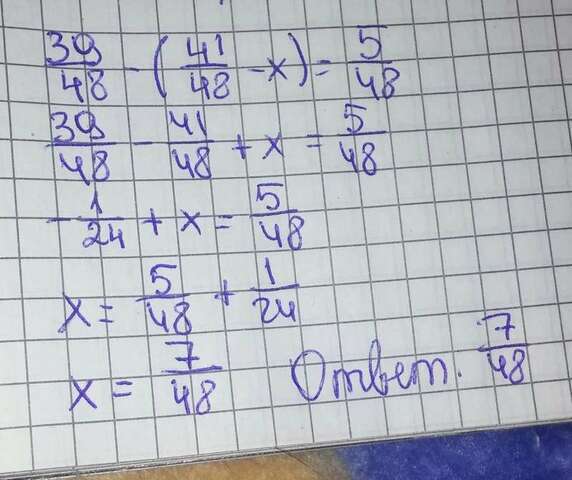 39/48 - (41/48 - x) = 5/48
39/48 - 41/48 + x = 5/48
- 1/24 + x = 5/48
x = 5/48 + 1/24
x = 7/48 Ответ. 7/48